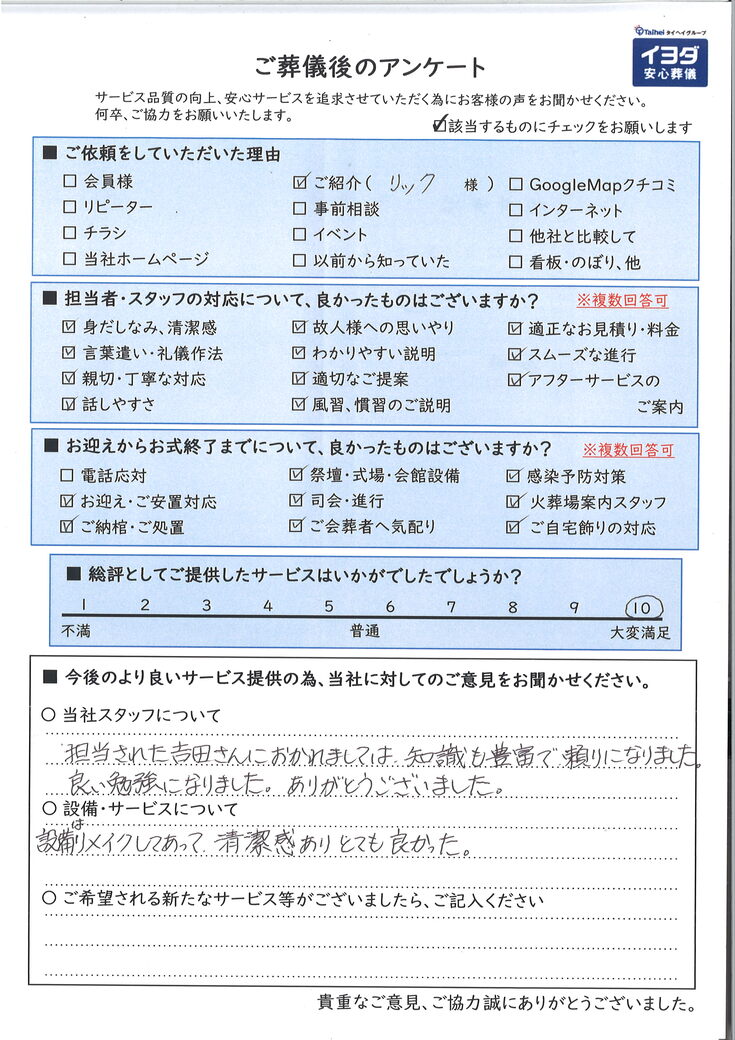 Taihei タイヘイグループ
イヨダ
安心葬儀
ご葬儀後のアンケート
サービス品質の向上、安心サービスを追求させていただく為にお客様の声をお聞かせください。
何卒、ご協力をお願いいたします。
☑該当するものにチェックをお願いします
■ ご依頼をしていただいた理由
□ 会員様 ☑ ご紹介( リック 様 ) □ GoogleMapクチコミ
□ リピーター □ 事前相談 □ インターネット
□ チラシ □ イベント □ 他社と比較して
□ 当社ホームページ □ 以前から知っていた □ 看板・のぼり、他
■ 担当者・スタッフの対応について、良かったものはございますか? ※複数回答可
☑ 身だしなみ、清潔感 ☑ 故人様への思いやり ☑ 適正なお見積り・料金
☑ 言葉遣い・礼儀作法 ☑ わかりやすい説明 ☑ スムーズな進行
☑ 親切・丁寧な対応 ☑ 適切なご提案 ☑ アフターサービスの
☑ 話しやすさ ☑ 風習、慣習のご説明 ご案内
■ お迎えからお式終了までについて、良かったものはございますか? ※複数回答可
□ 電話応対 ☑ 祭壇・式場・会館設備 ☑ 感染予防対策
☑ お迎え・ご安置対応 ☑ 司会・進行 ☑ 火葬場案内スタッフ
☑ ご納棺・ご処置 ☑ ご会葬者へ気配り ☑ ご自宅飾りの対応
■ 総評としてご提供したサービスはいかがでしたでしょうか?
1 2 3 4 5 6 7 8 9 10
不満 普通 大変満足
■ 今後のより良いサービス提供の為、当社に対してのご意見をお聞かせください。
○ 当社スタッフについて
担当された吉田さんにおかれましては 知識も豊富で頼りになりました。
良い勉強になりました。ありがとうございました。
○ 設備・サービスについて
設備はリメイクしてあって 清潔感ありとても良かった。
○ ご希望される新たなサービス等がございましたら、ご記入ください
貴重なご意見、ご協力誠にありがとうございました。